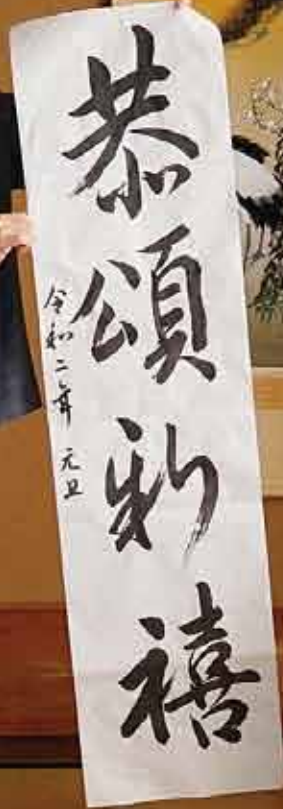 恭頌新禧
令和二年 元旦